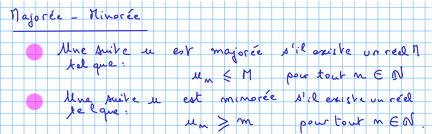 Majorée - Minorée
Une suite u est majorée s'il existe un réel M
tel que :
uₙ ≤ M pour tout n ∈ ℕ
Une suite u est minorée s'il existe un réel
tel que :
uₙ ≥ m pour tout n ∈ ℕ.